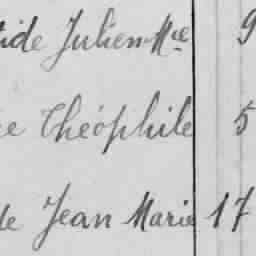 ide Julien Mie 9
e Théophile 5
de Jean Marie 17